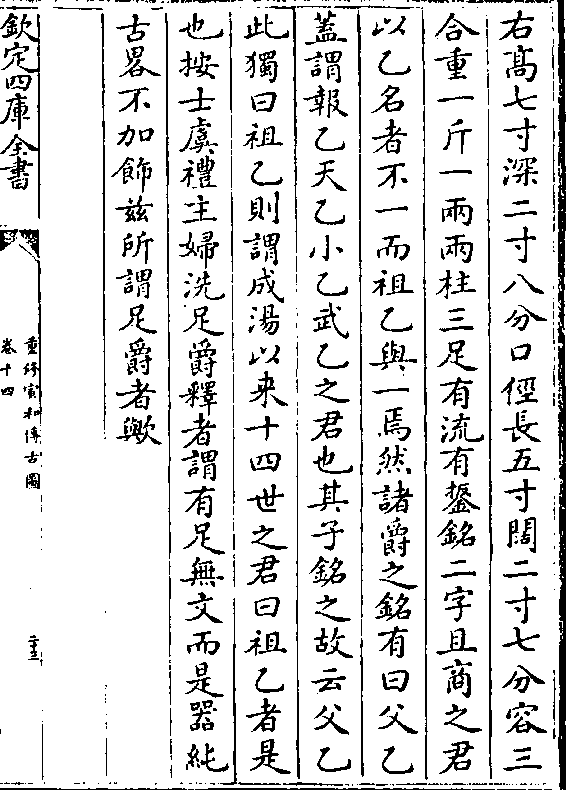 右髙七寸深二寸八分口徑長五寸闊二寸七分容三
合重一斤一兩兩柱三足有流有鋬銘二字且商之君
以乙名者不一而祖乙與一焉然諸爵之銘有曰父乙
蓋謂報乙天乙小乙武乙之君也其子銘之故云父乙
此獨曰祖乙則謂成湯以来十四世之君曰祖乙者是
也按士虞禮主婦洗足爵釋者謂有足無文而是器純
古畧不加飾兹所謂足爵者歟
欽定四庫全書
重修宣和博古圖
卷十四